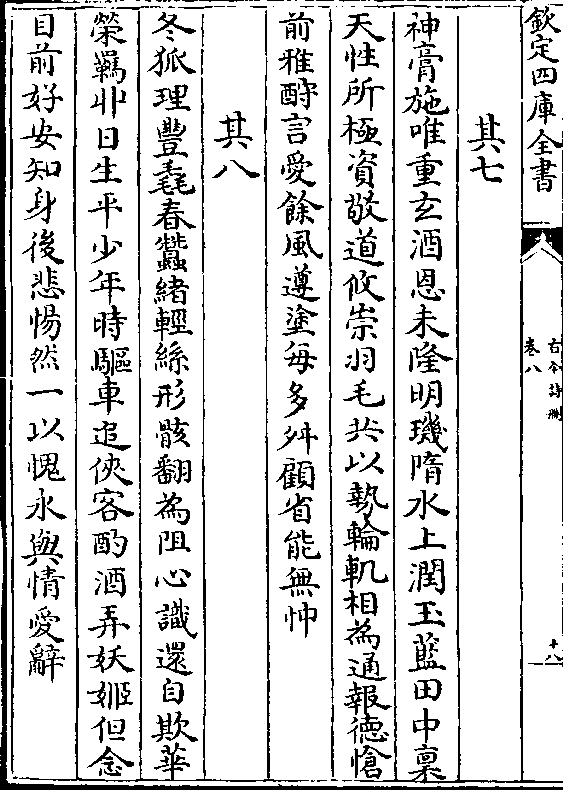 欽定四庫全書
卷八
古今詩刪
十八
其七
神膏施唯重玄酒恩未隆明璣隋水上潤玉藍田中稟
天性所極資敬道攸崇羽毛共以執輪軌相為通報德愴
前雅酧言愛餘風遵塗每多舛顧省能無忡
其八
冬狐理豐毳春蠶緒輕絲形骸翻為阻心識還自欺華
榮羈丱日生平少年時驅車追俠客酌酒弄妖姬但念
目前好安知身後悲惕然一以愧永與情愛辭